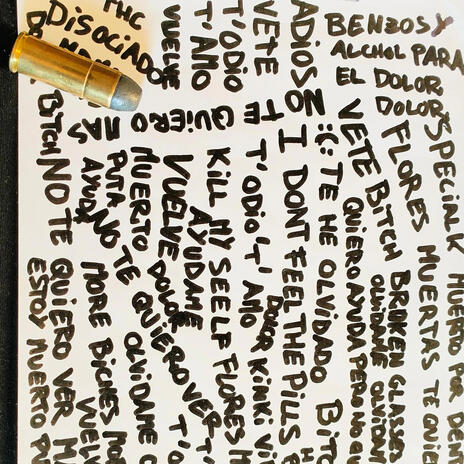 THC
DISOCIADO
BENZOS Y
ALCHOL PARA
EL DOLOR
DOLOR
SPECIAL K
MUERTO POR
FLORES MUERTAS TE
VETE BITCH BROKEN GLASSES
OLVIDAME
QUIERO AYUDA PERO NO
:(: TE HE OLVIDADO
ADIOS NO I DONT FEEL THE PILLS
VETE TE
T'ODIO
T'ODIO T' AMO
DOLOR KINKI
T' AMO
QUIERO MAS
VUELVE
KILL MY SEELF FLORES
AYUDAME
VUELVE DOLOR
QUIERO VER
MUERTO
TE
OLVIDAME
PUTA NO
AYUDA
MORE BICHES
BITCH NO TE QUIERO VER
ESTOY MUERTO